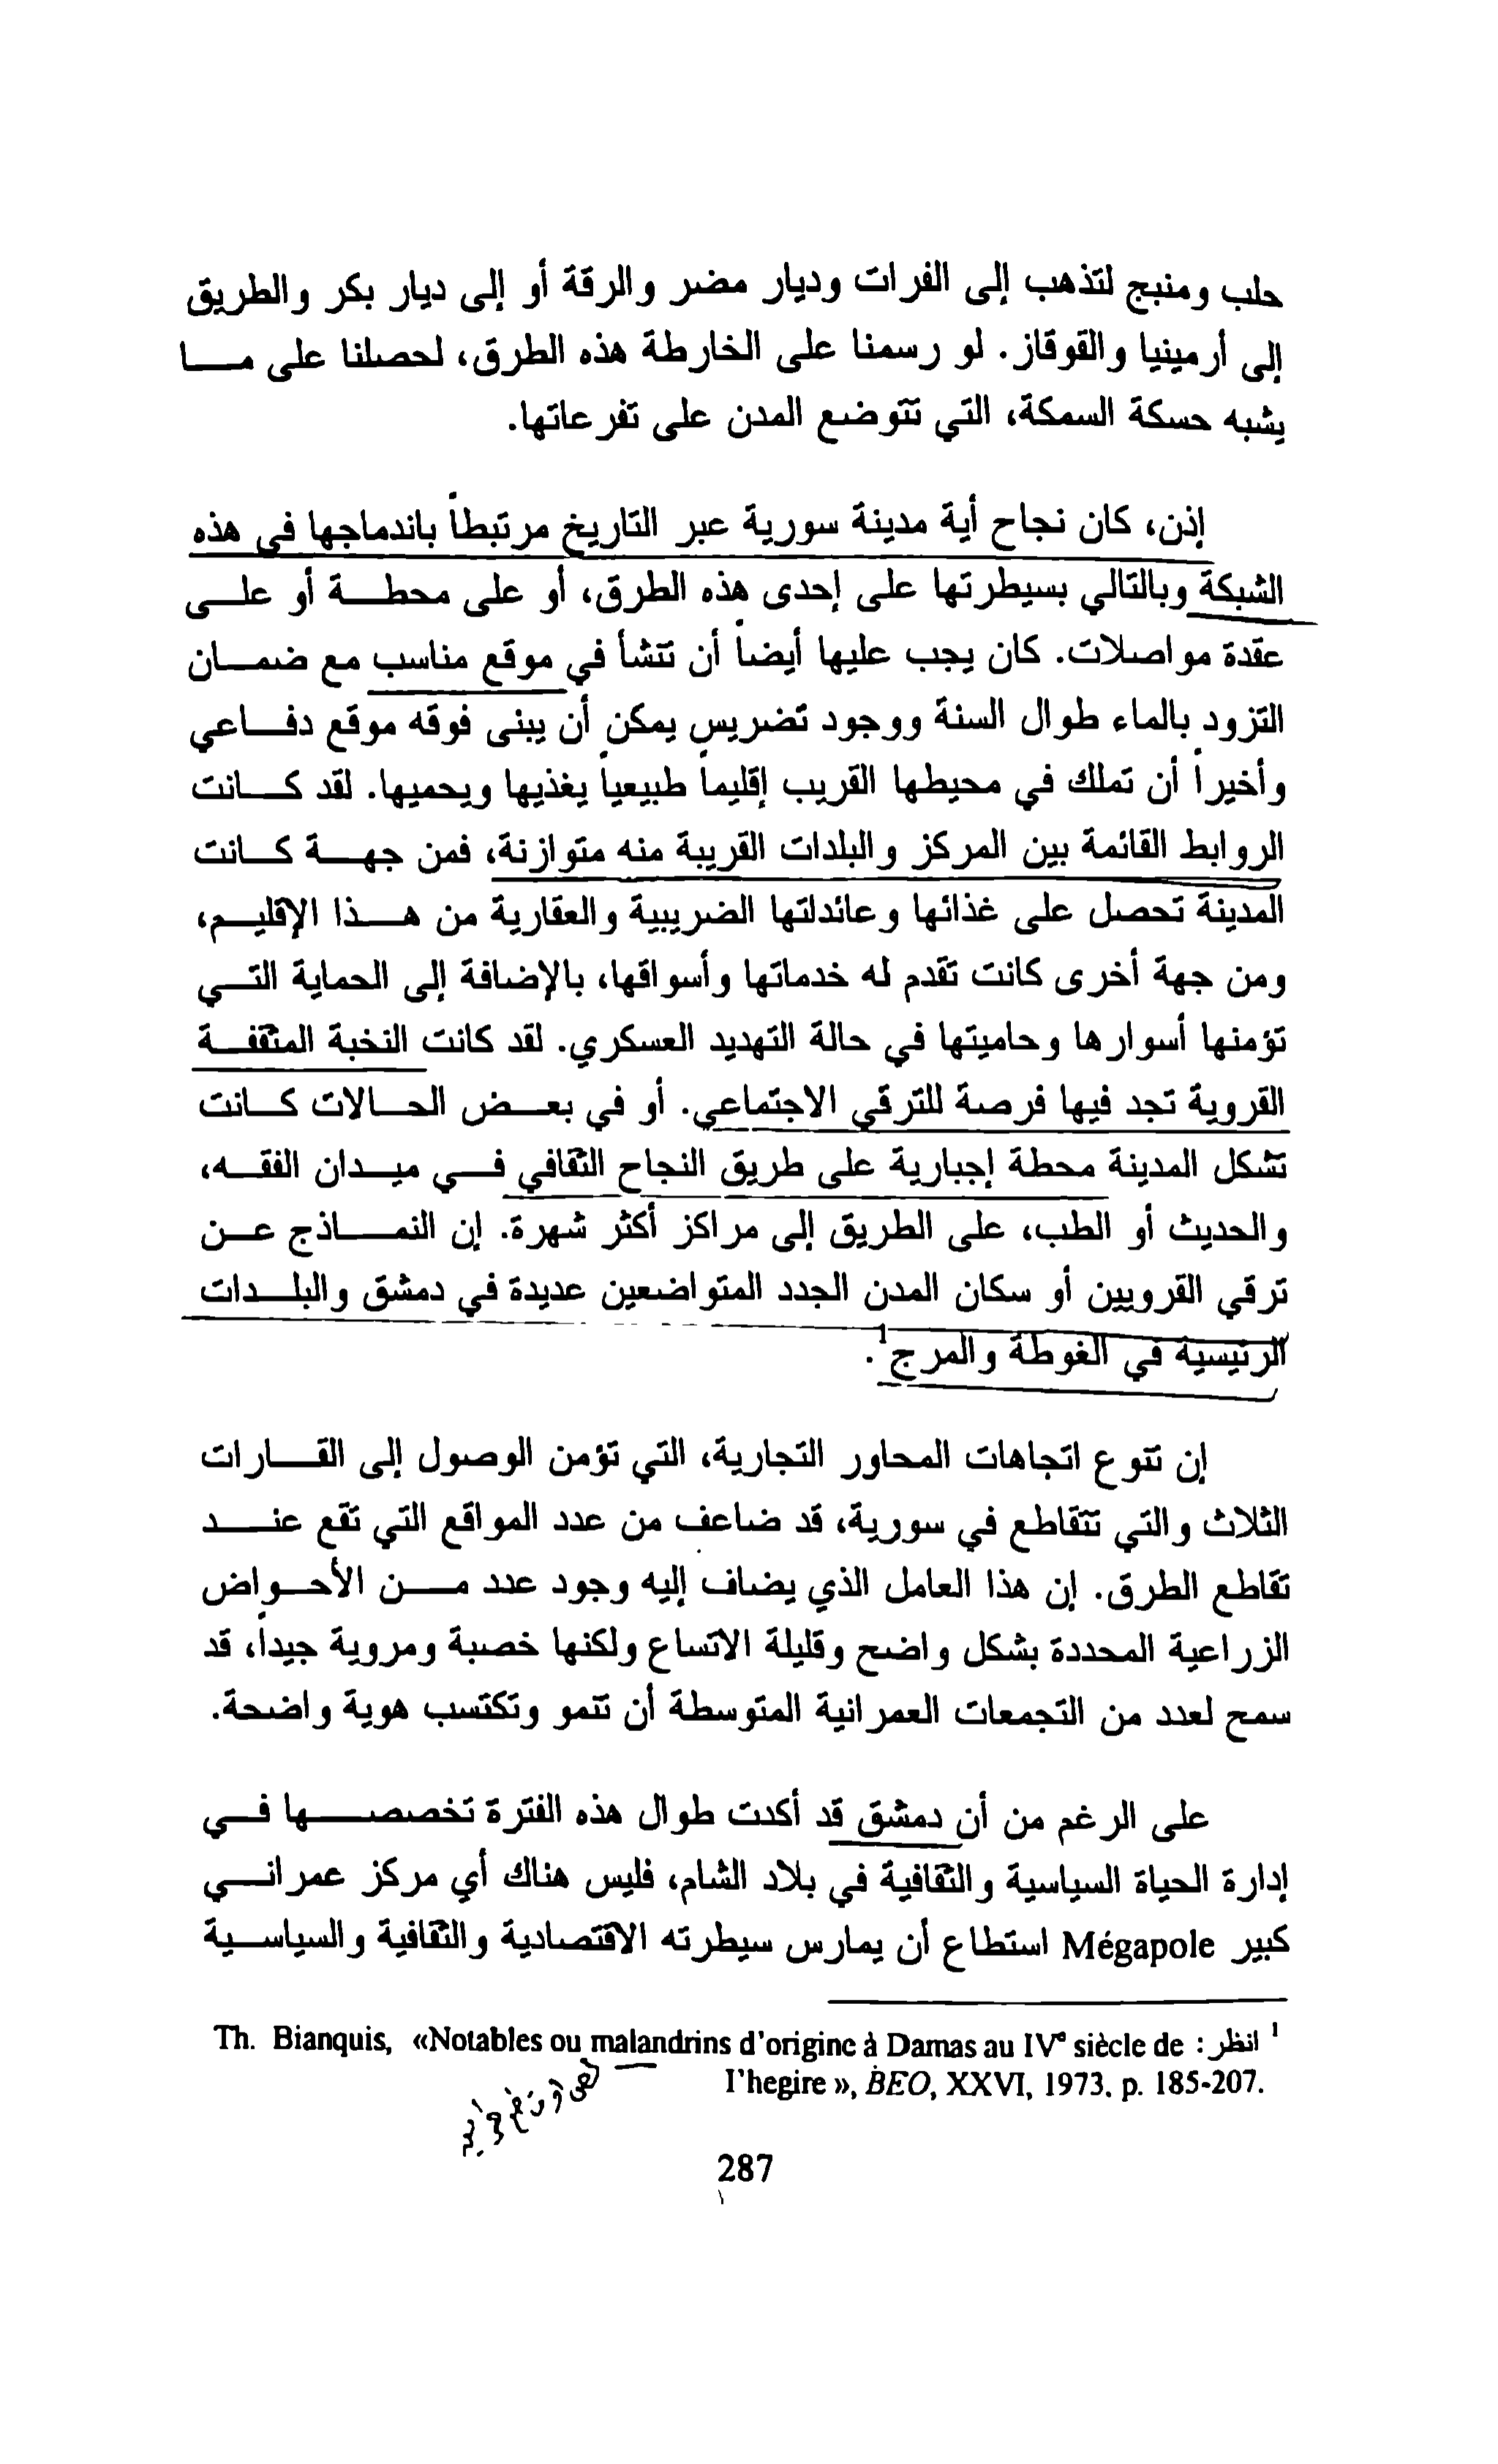 حلب ومنبج لتذهب إلى الفرات وديار مضر والرقة أو إلى ديار بكر والطريق
إلى أرمينيا والقوقاز. لو رسمنا على الخارطة هذه الطرق، لحصلنا على مـــا
يشبه حسكة السمكة، التي تتوضع المدن على تفرعاتها.
إذن، كان نجاح أية مدينة سورية عبر التاريخ مرتبطاً باندماجها في هذه
الشبكة وبالتالي بسيطرتها على إحدى هذه الطرق، أو على محطـــة أو علـــى
عقدة مواصلات. كان يجب عليها أيضاً أن تنشأ في موقع مناسب مع ضمـــان
التزود بالماء طوال السنة ووجود تضريس يمكن أن يبنى فوقه موقع دفـــاعي
وأخيراً أن تملك في محيطها القريب إقليماً طبيعياً يغذيها ويحميها. لقد كـــانت
الروابط القائمة بين المركز والبلدات القريبة منه متوازنة، فمن جهـــة كـــانت
المدينة تحصل على غذائها وعائدلتها الضريبية والعقارية من هـــذا الإقليـــم،
ومن جهة أخرى كانت تقدم له خدماتها وأسواقها، بالإضافة إلى الحماية التـــي
تؤمنها أسوارها وحاميتها في حالة التهديد العسكري. لقد كانت النخبة المثقفـــة
القروية تجد فيها فرصة للترقي الاجتماعي. أو في بعـــض الحـــالات كـــانت
تشكل المدينة محطة إجبارية على طريق النجاح الثقافي فـــي ميـــدان الفقـــه،
والحديث أو الطب، على الطريق إلى مراكز أكثر شهرة. إن النمـــاذج عـــن
ترقي القرويين أو سكان المدن الجدد المتواضعين عديدة في دمشق والبلـــدات
الرئيسية في الغوطة والمرج¹.
إن تنوع اتجاهات المحاور التجارية، التي تؤمن الوصول إلى القـــارات
الثلاث والتي تتقاطع في سورية، قد ضاعف من عدد المواقع التي تقع عنـــد
تقاطع الطرق. إن هذا العامل الذي يضاف إليه وجود عدد مـــن الأحـــواض
الزراعية المحددة بشكل واضح وقليلة الاتساع ولكنها خصبة ومروية جيداً، قد
سمح لعدد من التجمعات العمرانية المتوسطة أن تنمو وتكتسب هوية واضحة.
على الرغم من أن دمشق قد أكدت طوال هذه الفترة تخصصـــها فـــي
إدارة الحياة السياسية والثقافية في بلاد الشام، فليس هناك أي مركز عمرانـــي
كبير Mégapole استطاع أن يمارس سيطرته الاقتصادية والثقافية والسياســـية
¹ انظر: Th. Bianquis, «Notables ou malandrins d'origine à Damas au IVᵉ siècle de
l'hegire », BEO, XXVI, 1973. p. 185-207.
287